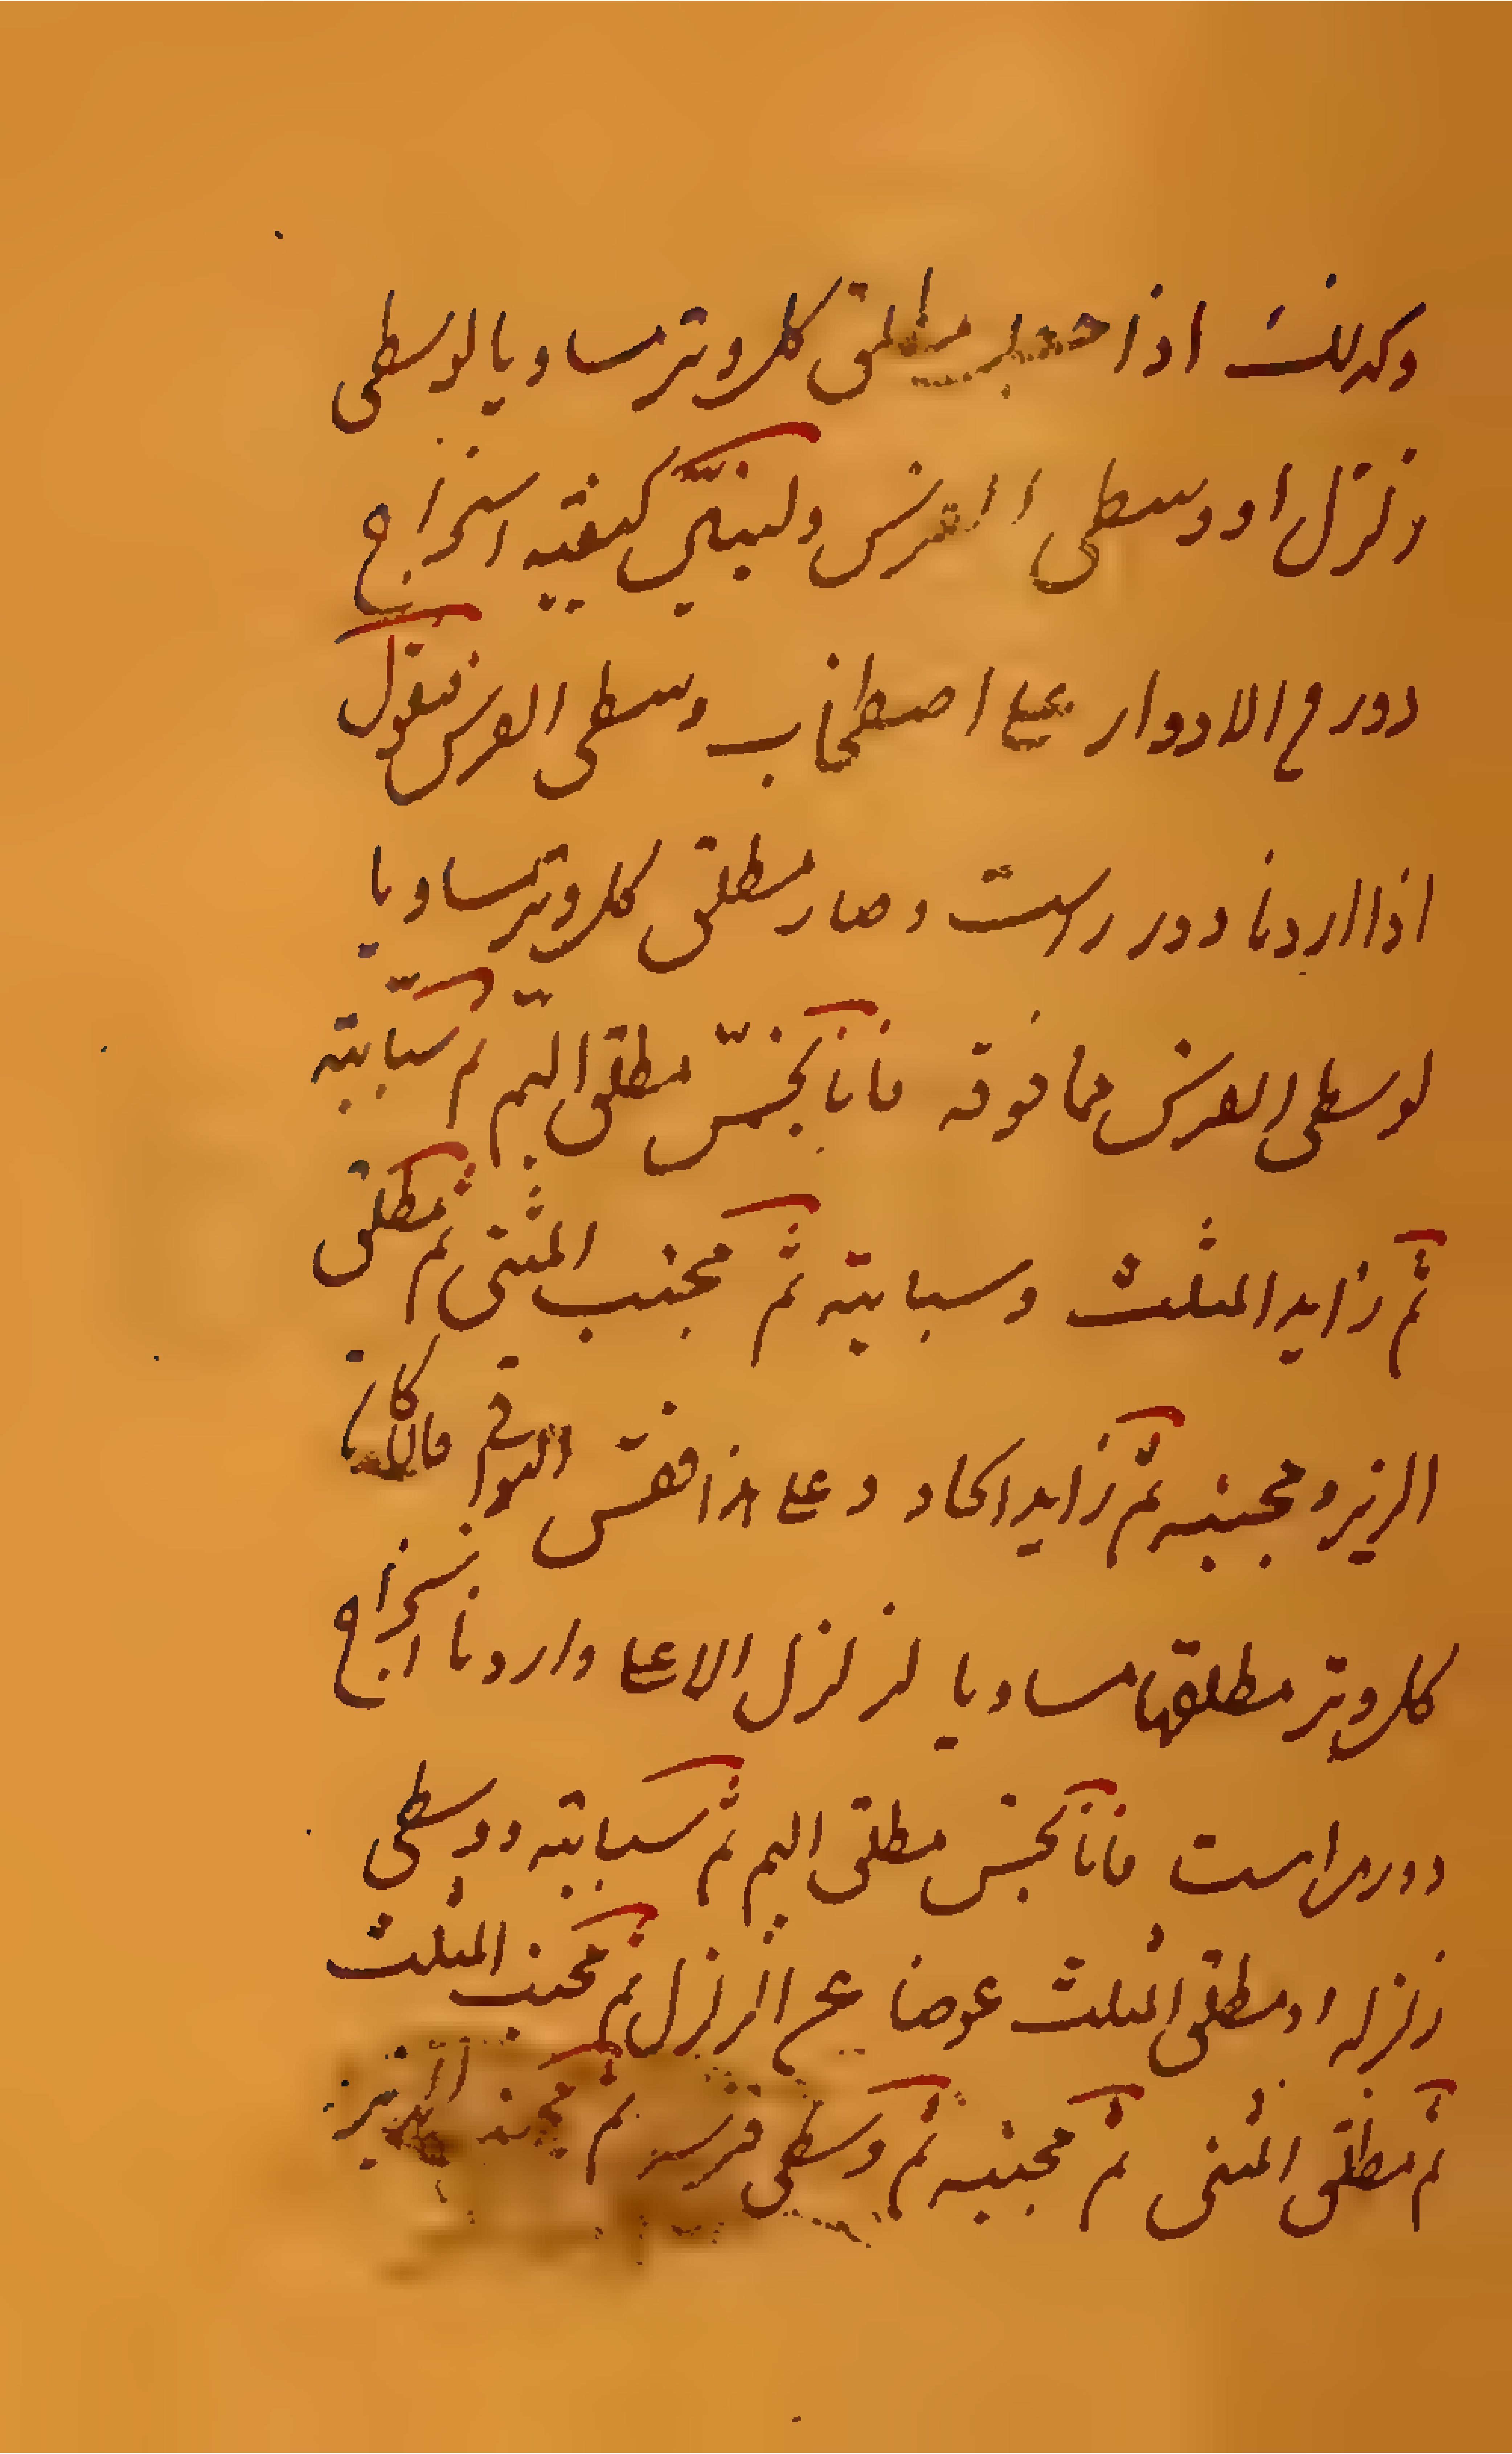 وكذلك اذا جعل مطلق كل وتر مساويا لوسطى
زلزل او وسطى الفرس ولنبيّن كيفية استخراج
دور من الادوار على اصطخاب وسطى الفرس فنقول
اذا اردنا دور راست وصار مطلق كل وتر مساويا
لوسطى الفرس مما فوقه فانا نجسّ مطلق البمّ ثم سبّابته
ثم زايد المثلث وسبابته ثم مجنب المثنى ثم مطلق
الزير ومجنبه ثم زايد الحاد وعلى هذا فقس البواقى فان كان
كل وتر مطلقها مساويا لزلزل الاعلى واردنا استخراج
دور راست فانا نجس مطلق البم ثم سبابته ووسطى
زلزله او مطلق المثلث عوضا عن الزلزل ثم مجنب المثلث
ثم مطلق المثنى ثم مجنبه ثم وسطى فرسه ثم مجنب الزير